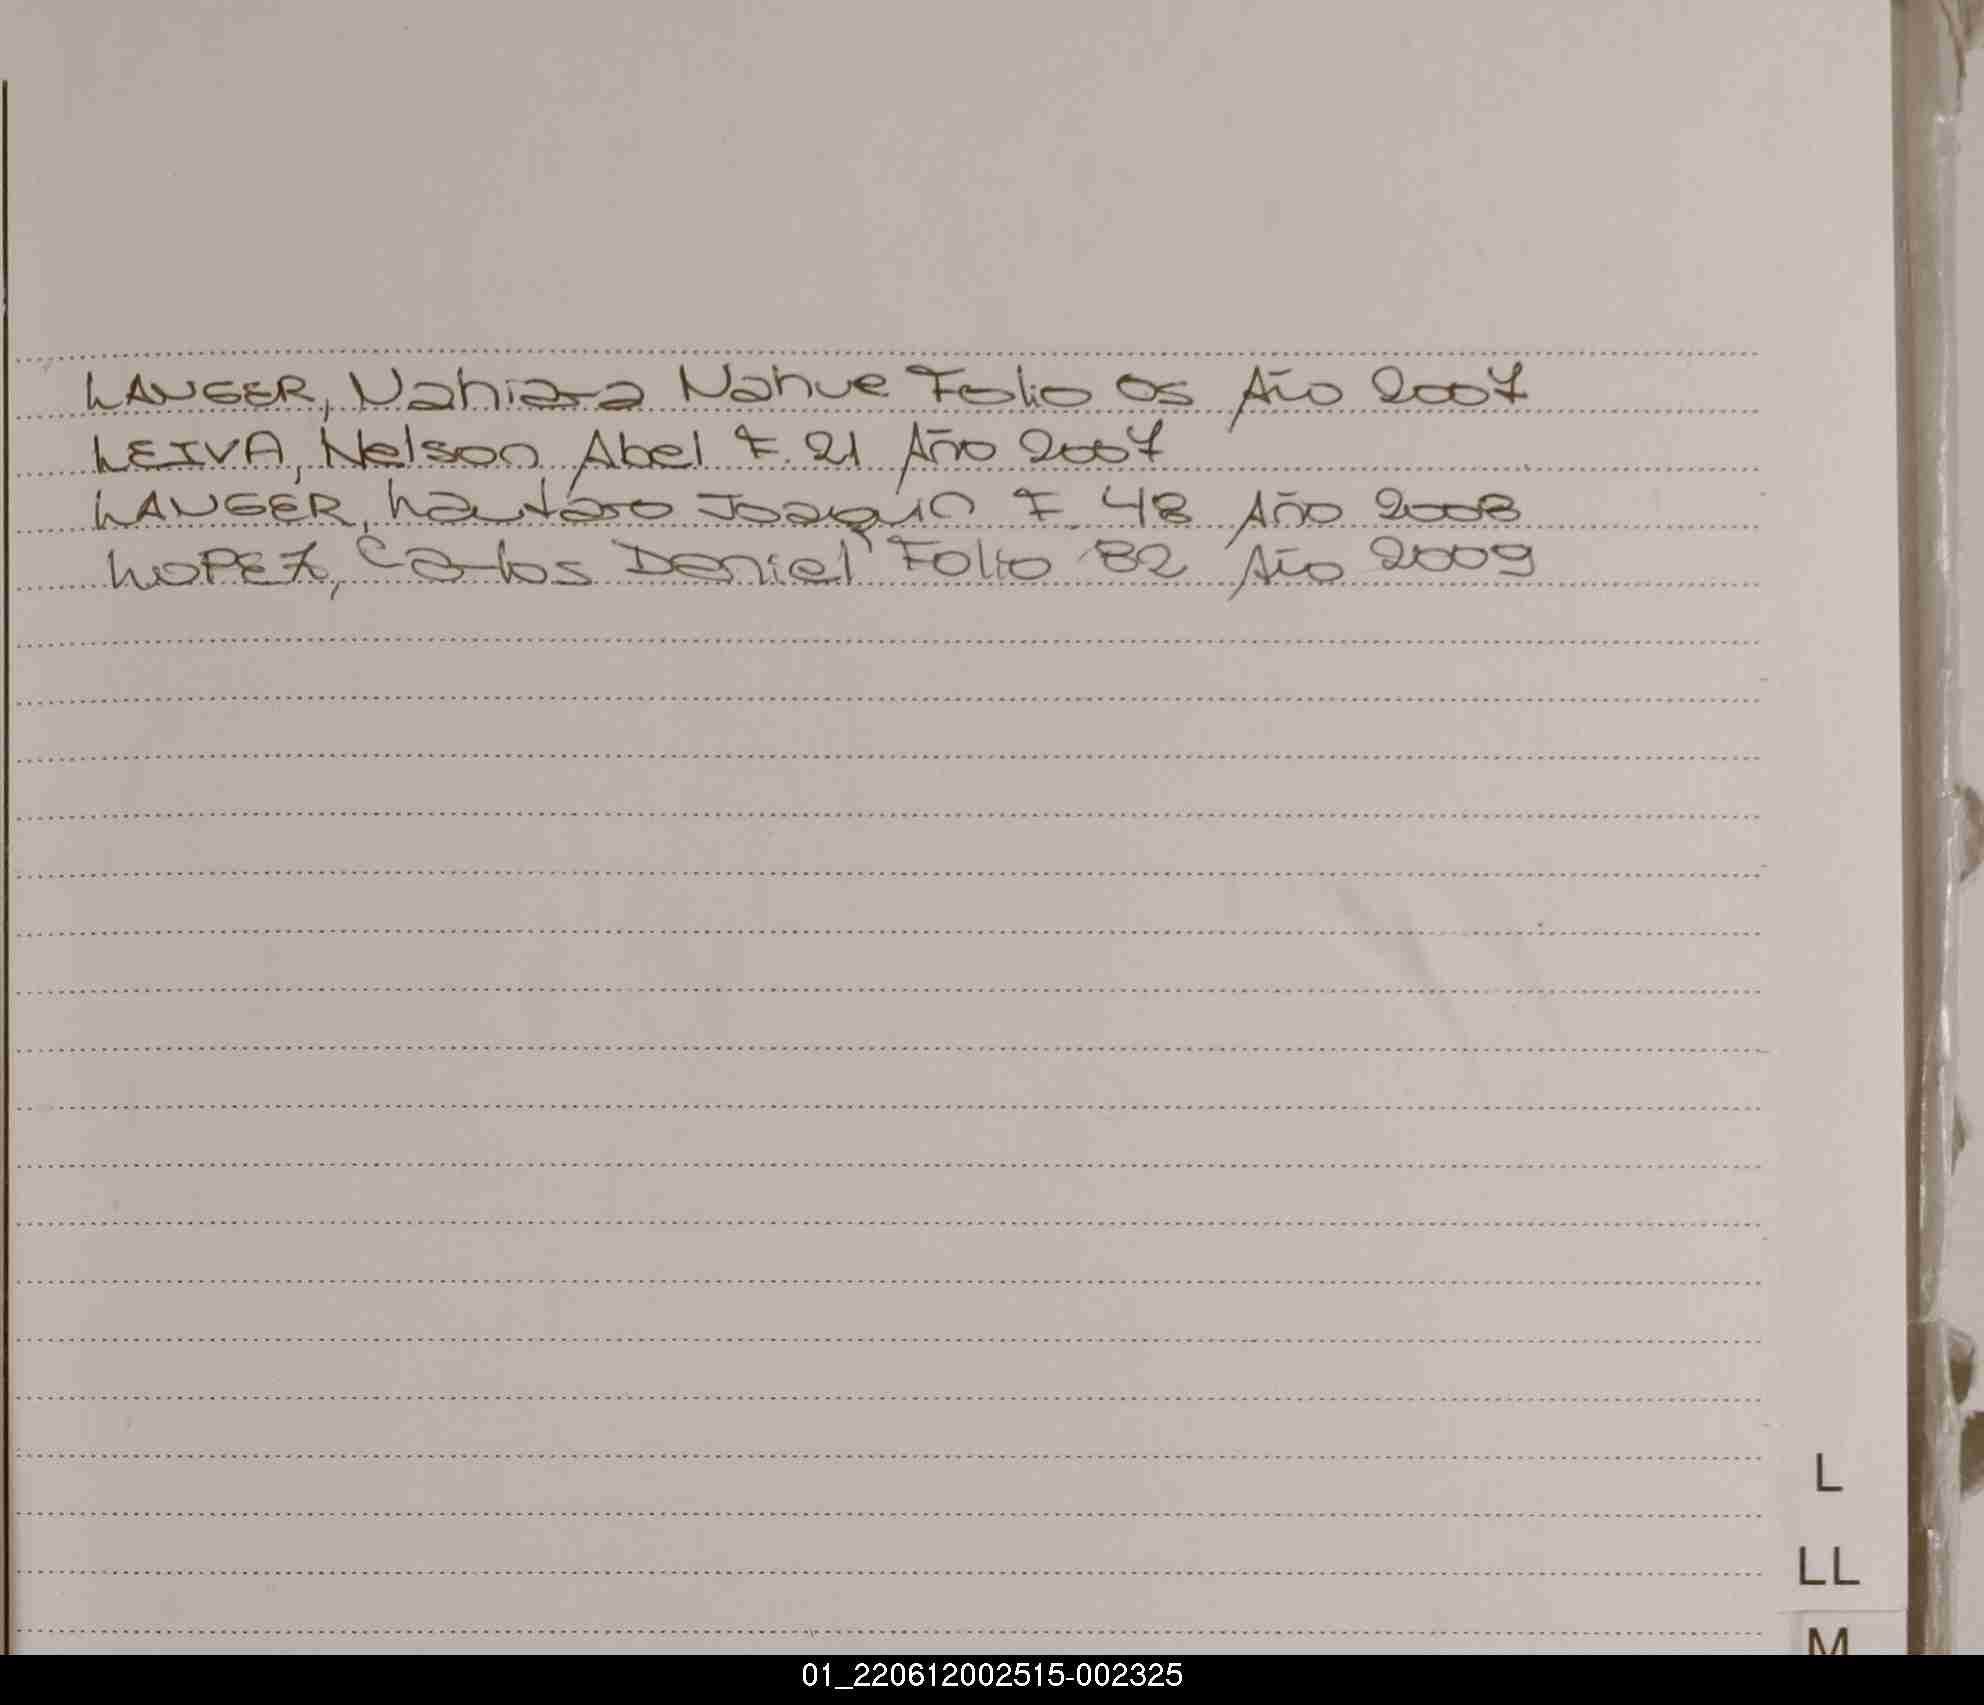 LANGER, Nahiara Nahue Folio 05 Año 2007
LEIVA, Nelson Abel F. 21 Año 2007
LANGER, Lautaro Joaquin F. 48 Año 2008
LOPEZ, Carlos Daniel Folio 82 Año 2009
L
LL
M
01_220612002515-002325